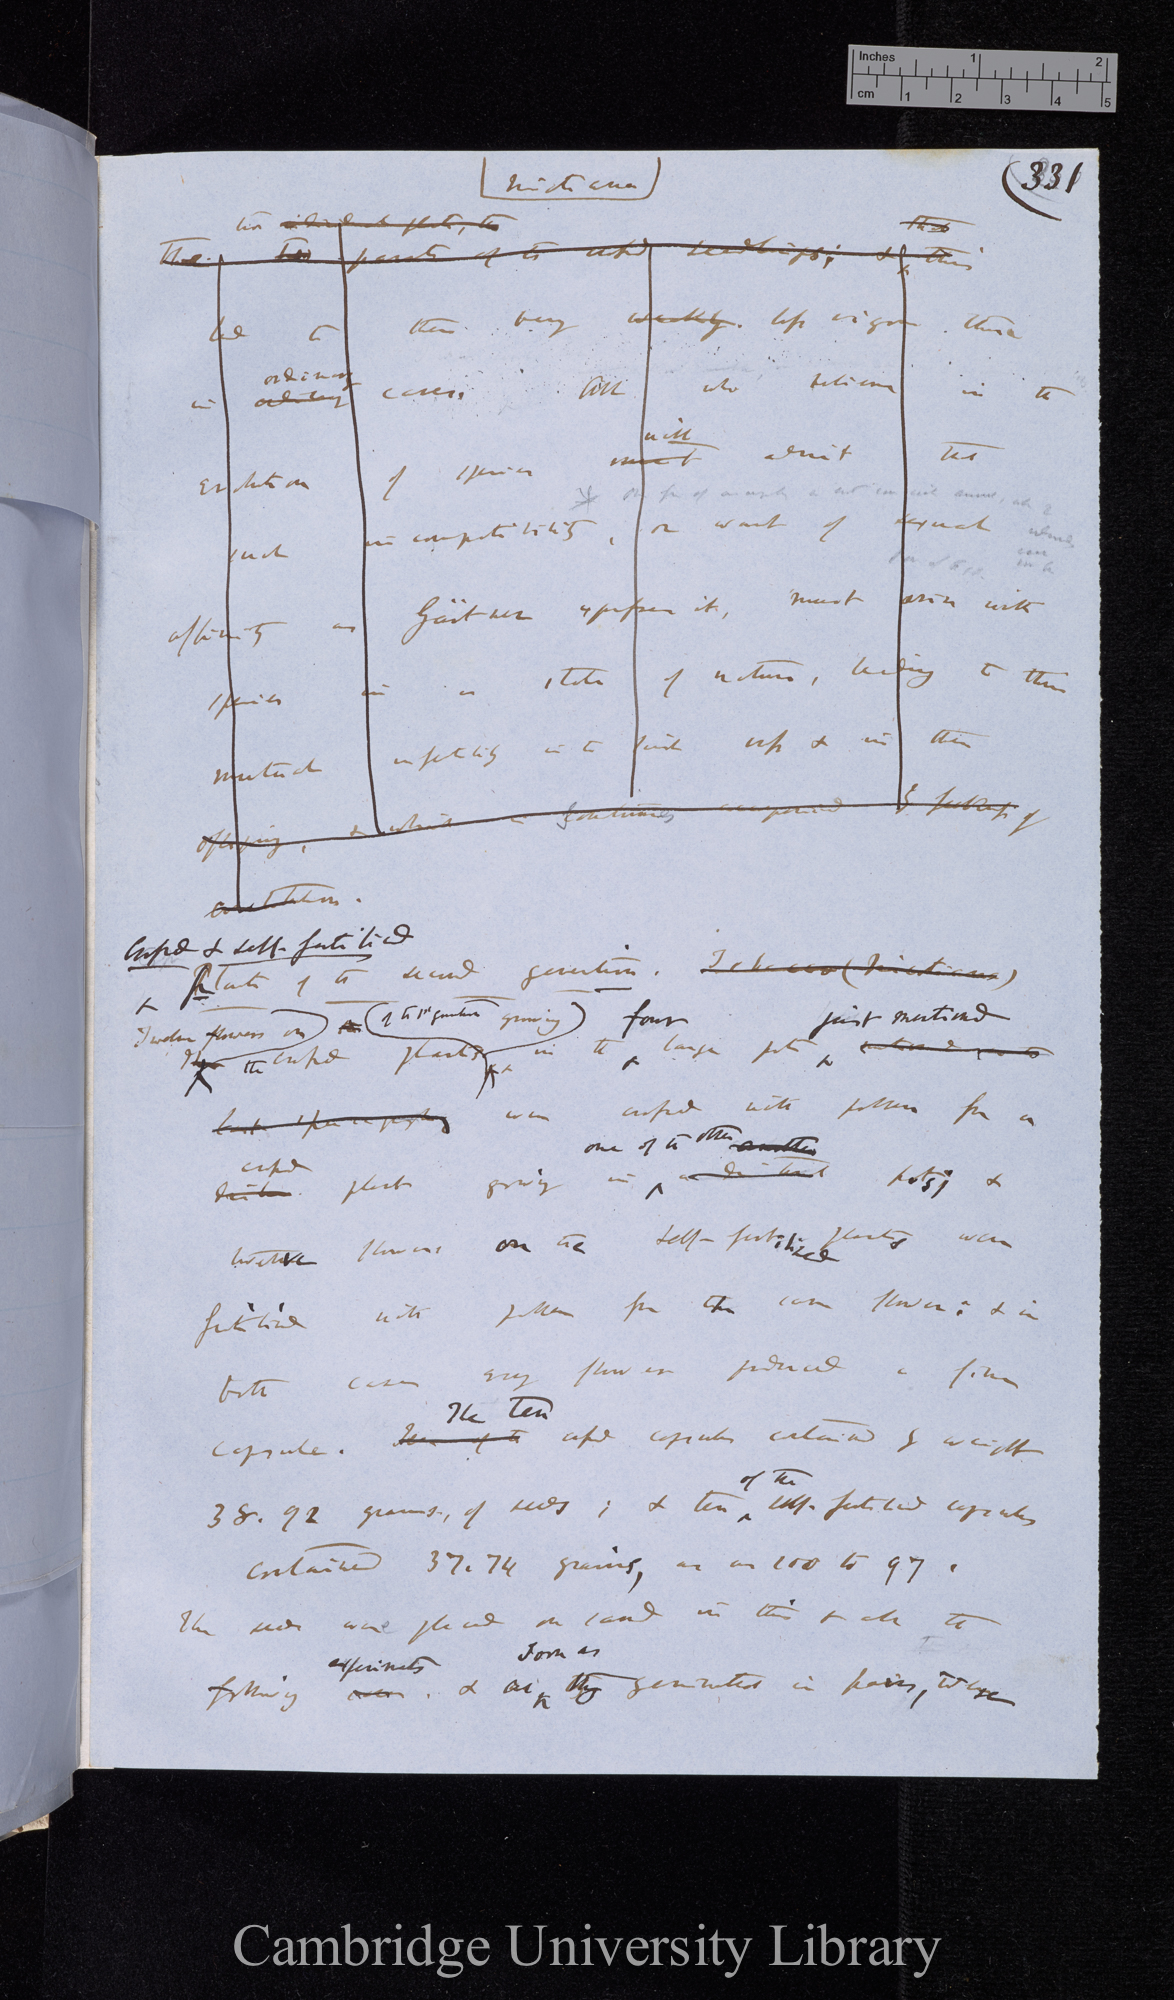 Inches 1 2
cm 1 2 3 4 5
(Nicotiana)
(331
the
parents of the crossed seedlings; & this
led to their very weakly less vigour than
ordinary
in cases. All who believe in the
will
evolution of species must admit that
such incompatibility, or want of sexual
affinity as Gärtner expresses it, must arise with
species in a state of nature, leading to their
mutual infertility in the first cross & in their
offspring, & which is sometimes accompanied by feebleness of
constitution.
Crossed & self-fertilised
Plants of the second generation. Tobacco (Nicotiana)
Twelve flowers on (of the 1st generation growing) four just mentioned
the crossed plants in the large pots
were crossed with pollen from a
one of the other another
crossed
plant growing in a distinct pots; &
twelve flowers on the self-fertilized plants were
fertilised with pollen from the same flower: & in
both cases every flower produced a fine
The Ten
capsule. Ten of the crossed capsules contained by weight
of the
38.92 grains, of seeds; & ten self-fertilised capsules
contained 37.74 grains, or as 100 to 97.
The seeds were placed on sand in this & all the
experiments soon as
following & as they germinated in pairs, were
Cambridge University Library